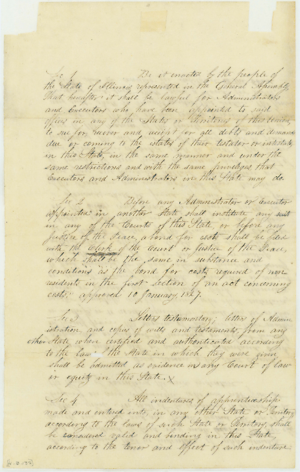 Sec 1 Be it enacted by the people of
the State of Illinois represented in the General Assembly
that hereafter it shall be lawful for Administrators
and Executors who have been appointed to such
offices in any of the States or Territories of this Union
to sue for, recover and receipt for all debts and demands
due or coming to the estate of their testator or intestate
in this State, in the same manner and under the
same restrictions and with the same privileges that
Executors and Administrators in this State may do.
Sec 2 Before any Administrator or executor
appointed in another State shall institute any suit
in any of the Courts of this State or before any
Justice of the Peace, a bond for costs shall be filed
with the Clerk of the Court or Justice of the Peace,
which shall be the same in substance and
conditions as the bond for costs required of non
residents in the first section of an act concerning
costs, approved 10 January 1827.
Sec 3 Letters testamentary, letters of Admin
istration, and copies of wills and testaments from any
other State, when certified and authenticated according
to the laws of the State in which they were given
shall be admitted as evidence in any Court of law
or equity in this State.
Sec 4 All indentures of apprenticeship
made and entered into, in any other State, or Territory
according to the laws of such State or Territory shall
be considered valid and binding in this State,
according to the tenor and effect of such indenture